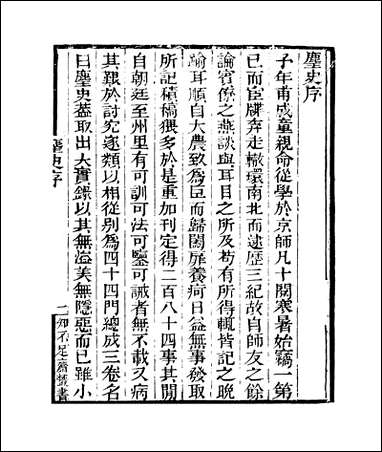 麈史序
予年甫成童親命從學於京師凡十閱寒暑始竊一第
已而宦牒奔走轍環南北而逮歷三紀故自師友之餘
論賓僚之燕談與耳目之所及苟有所得輒皆記之晚
踰耳順自大農致為臣而歸闔扉養疴日益無事發取
所記積稿猥多於是重加刊定得二百八十四事其間
自朝廷至州里有可訓可法可鑒可誡者無不載又病
其艱於討究逐類以相從別為四十四門總成三卷名
曰麈史蓋取出夫實錄以其無溢美無隱惡而已雖小
麈史序
一知不足齋叢書